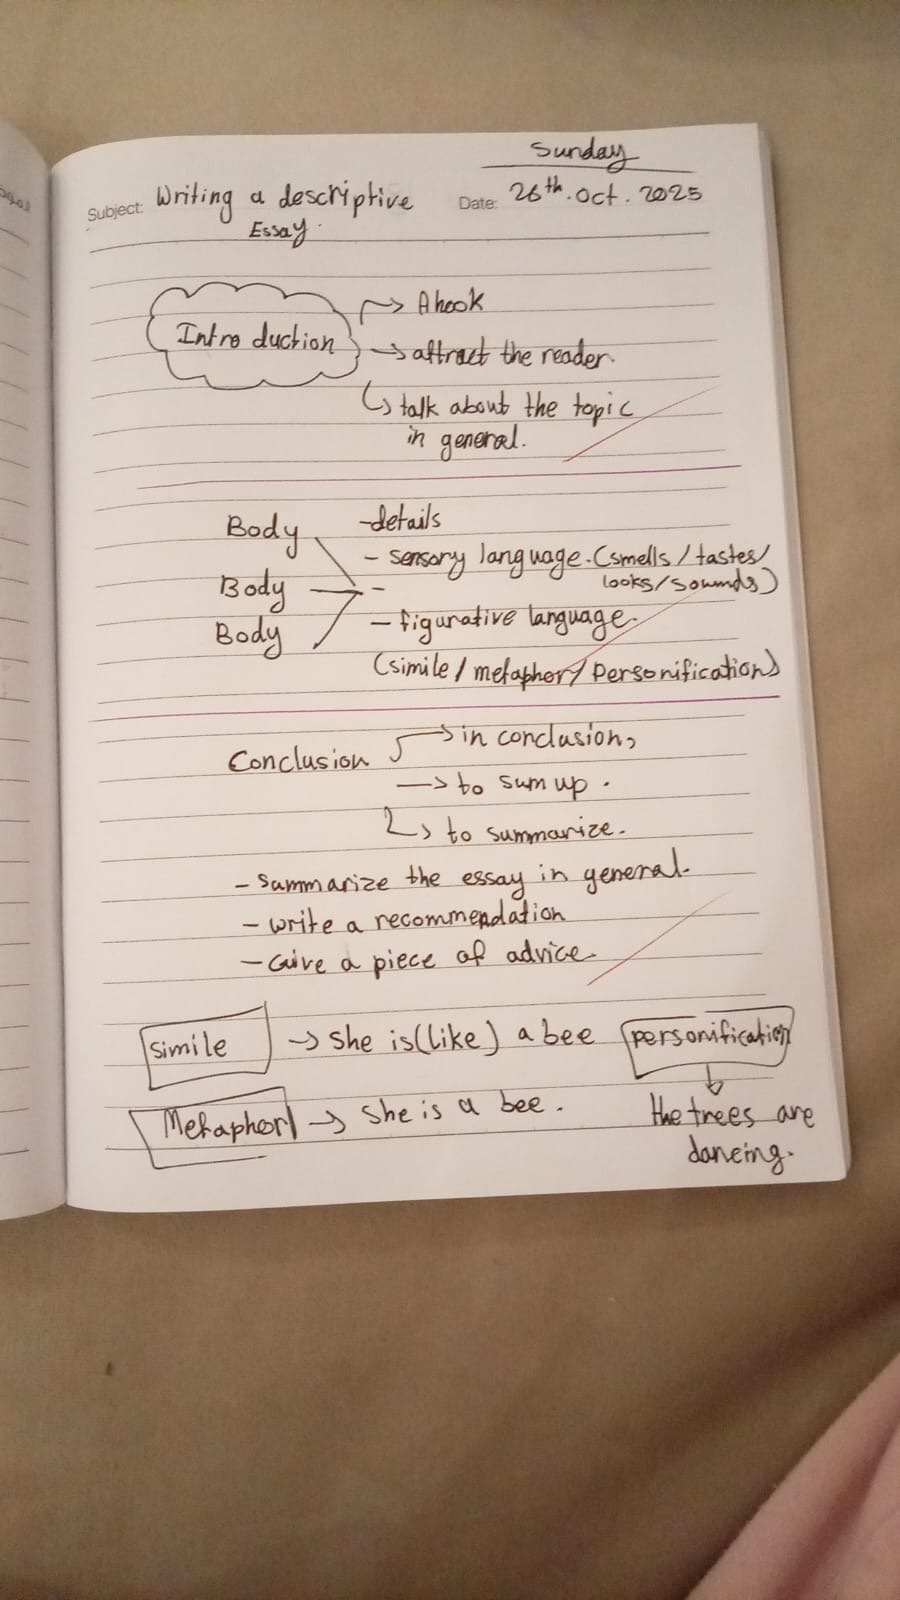 Sunday
Subject: Writing a descriptive Date: 26th. Oct. 2025
Essay.
Introduction
→ A hook
→ attract the reader.
↳ talk about the topic
in general.
Body
-details
- sensory language. (smells / tastes/
looks/sounds)
Body
-
Body
- figurative language.
(simile / metaphor / Personification)
Conclusion → in conclusion,
→ to sum up.
↳ to summarize.
- Summarize the essay in general.
- write a recommendation
- Give a piece of advice.
Simile → She is (like) a bee
personification
Metaphor → She is a bee.
the trees are
dancing.